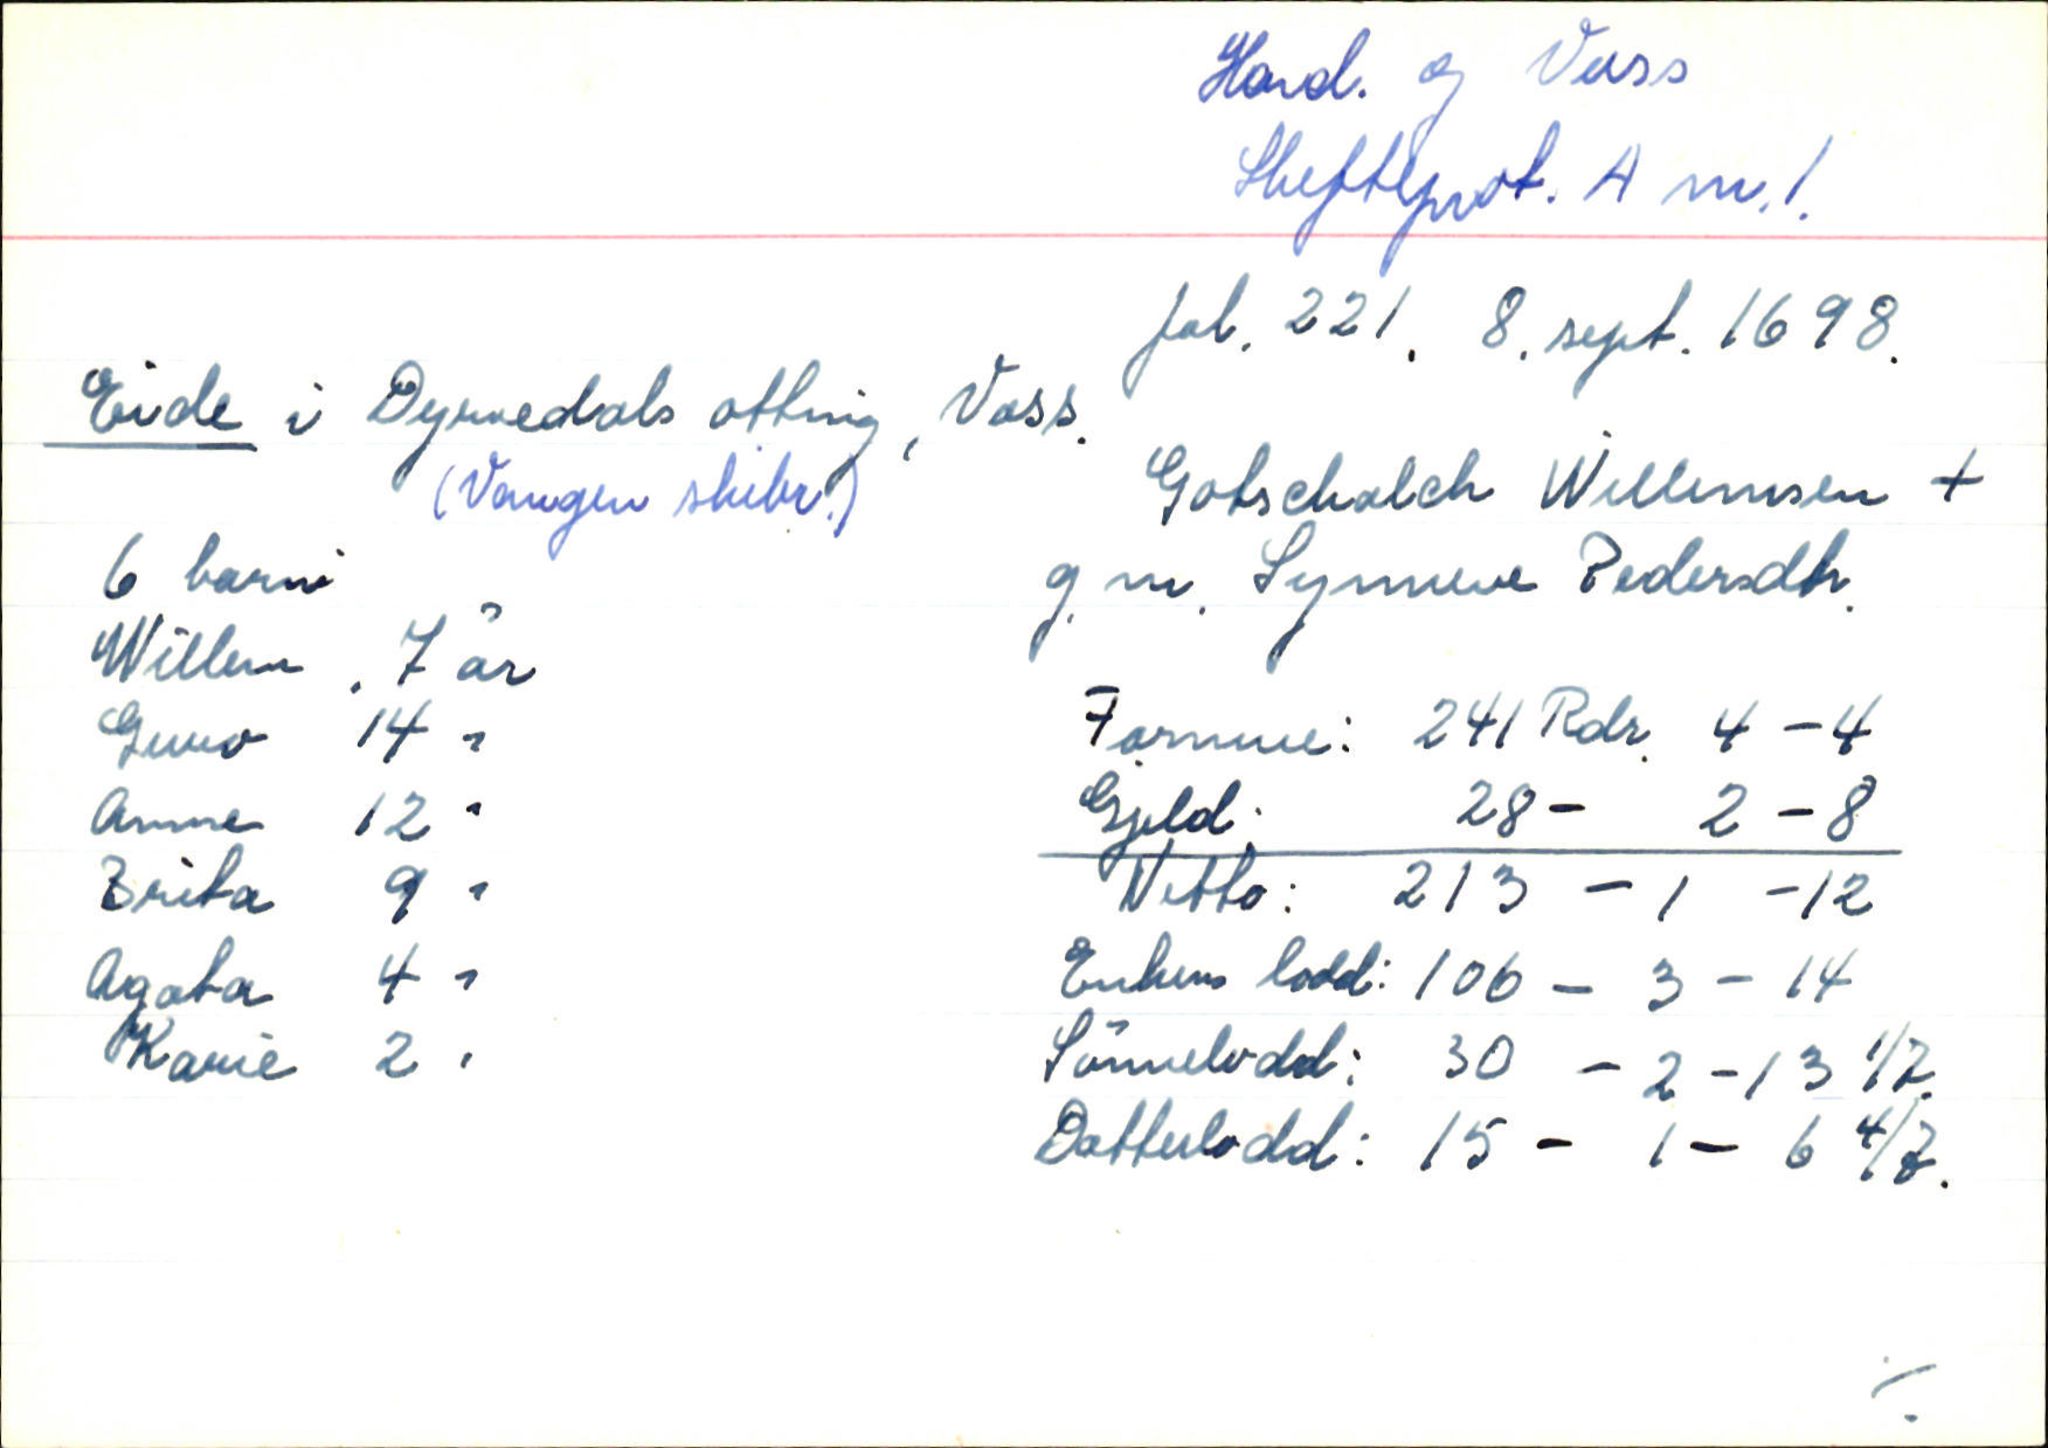 Hard. og Voss
Skifteprot. A nr. 1.
fol. 221. 8. sept. 1698.
Eide i Dyrvedals otting, Voss.
(Vangen skibr.)
Gotschalch Willumsen +
g. m. Synneve Pedersdtr.
6 barn
Willem. 7 år
Guro 14 "
Anne 12 "
Brita 9 "
Agata 4 "
Karie 2 "
Formue: 241 Rdr. 4 - 4
Gjeld: 28 - 2 - 8
Netto: 213 - 1 - 12
Enkens lodd: 106 - 3 - 14
Sønnelodd: 30 - 2 - 13 1/7.
Dotterlodd: 15 - 1 - 6 4/7.